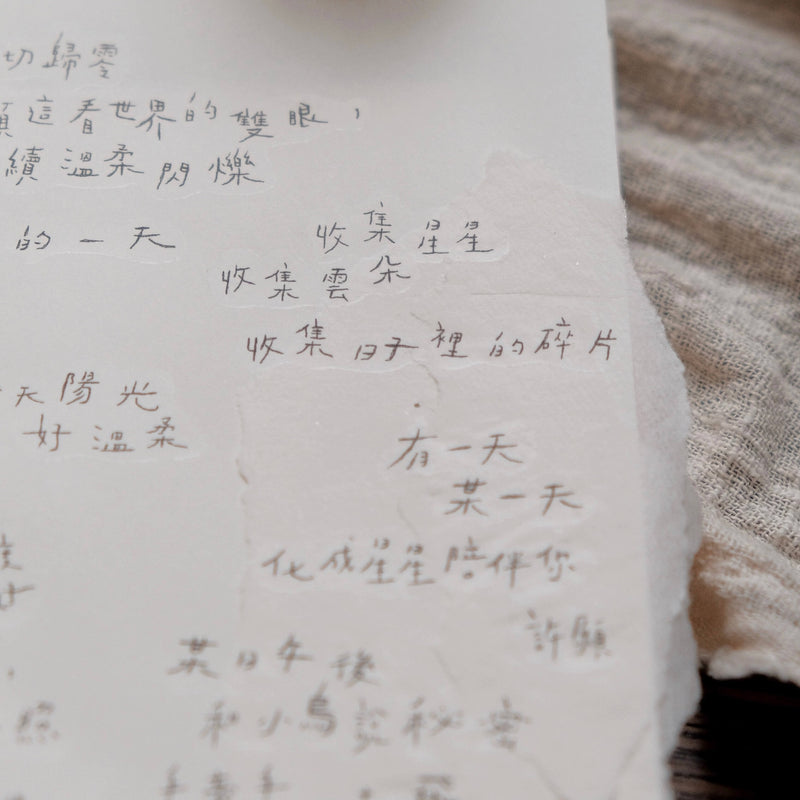 切歸零
願這看世界的雙眼，
續溫柔閃爍
的一天
收集星星
收集雲朵
收集日子裡的碎片
天陽光
好溫柔
有一天
某一天
化成星星陪伴你
許願
某日午後
和小鳥說秘密